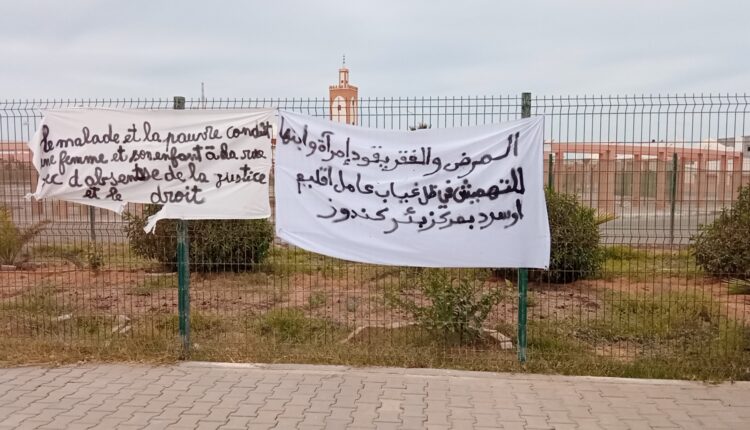 Le malade et la pauvre condit
une femme et son enfant à la rue
et d'absentse de la justice
et le droit
المرض والفقر يقود إمرأة وابنها
للتهميش في ظل غياب عامل إقليم
اوسرد بمركز بئر كندوز